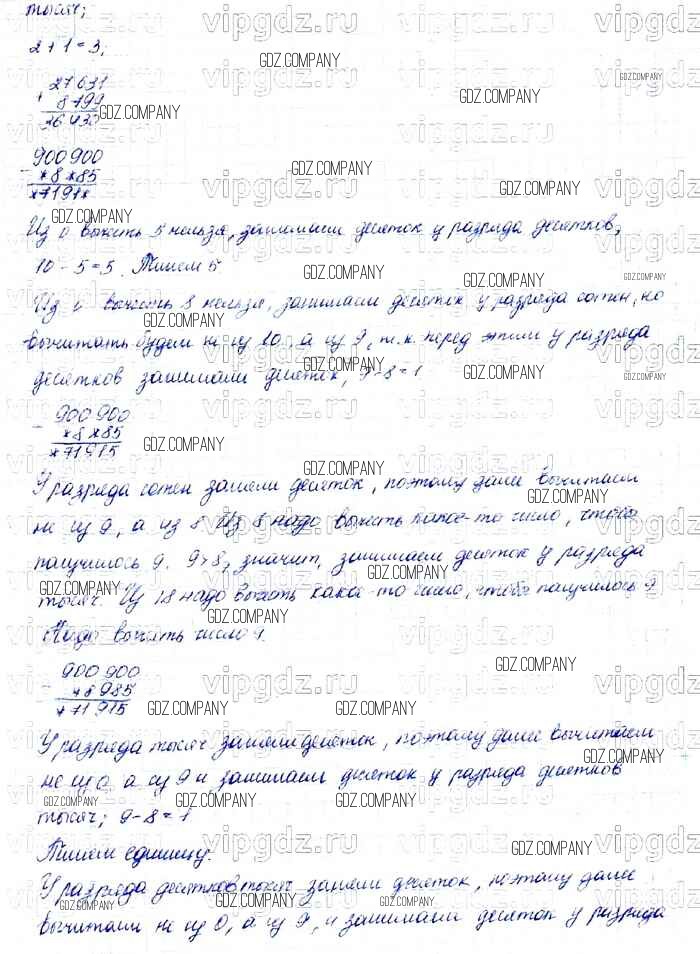 тысяч;
2+1=3;
27631
+
8799
36430
900900
-
*8*85
*7191*
Из 0 вычесть 5 нельзя, занимаем десяток у разряда десятков,
10-5=5. Пишем 5
Из 0 вычесть 8 нельзя, занимаем десяток у разряда сотен, но
вычитать будем не из 10, а из 9, т.к. перед этим у разряда
десятков занимали десяток, 9-8=1
900900
-
*8*85
*71915
У разряда сотен заняли десяток, поэтому далее вычитаем
не из 9, а из 8. Из 8 надо вычесть какое-то число, чтобы
получилось 9. 9>8, значит, занимаем десяток у разряда
тысяч. Из 18 надо вычесть какое-то число, чтобы получилось 9
Надо вычесть число 9.
900900
-
*8985
*71915
У разряда тысяч заняли десяток, поэтому далее вычитаем
не из 0, а из 9 и занимаем десяток у разряда десятков
тысяч; 9-8=1
Пишем единицу.
У разряда десятков тысяч заняли десяток, поэтому далее
вычитаем не из 0, а из 9, и занимаем десяток у разряда